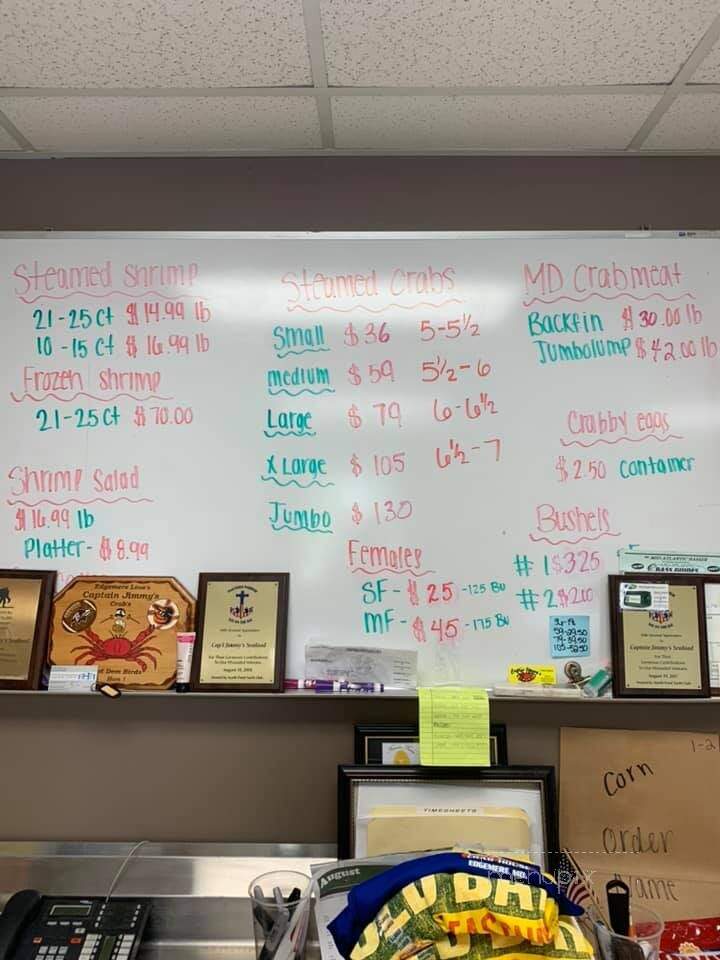 Steamed shrimp
21-25 ct $14.99 lb
10-15 ct $16.99 lb
Frozen shrimp
21-25 ct $70.00
Shrimp Salad
$16.99 lb
Platter- $8.99
Steamed Crabs
Small $36 5-5½
medium $59 5½-6
Large $79 6-6½
X Large $105 6½-7
Jumbo $130
Females
SF- $25 -125 Bu
MF- $45 -175 Bu
MD Crabmeat
Backfin $30.00 lb
Jumbolump $42.00 lb
Crabby eggs
$2.50 container
Bushels
#1 $325
Edgemere Love's
Captain Jimmy's
Crab's
Dem Birds
Hon!
Cap't Jimmy's Seafood
Captain Jimmy's Seafood
TIMESHEETS
August
EDGEMERE MD.
OLD BAY
1-2
Corn
Order
Name
menupix